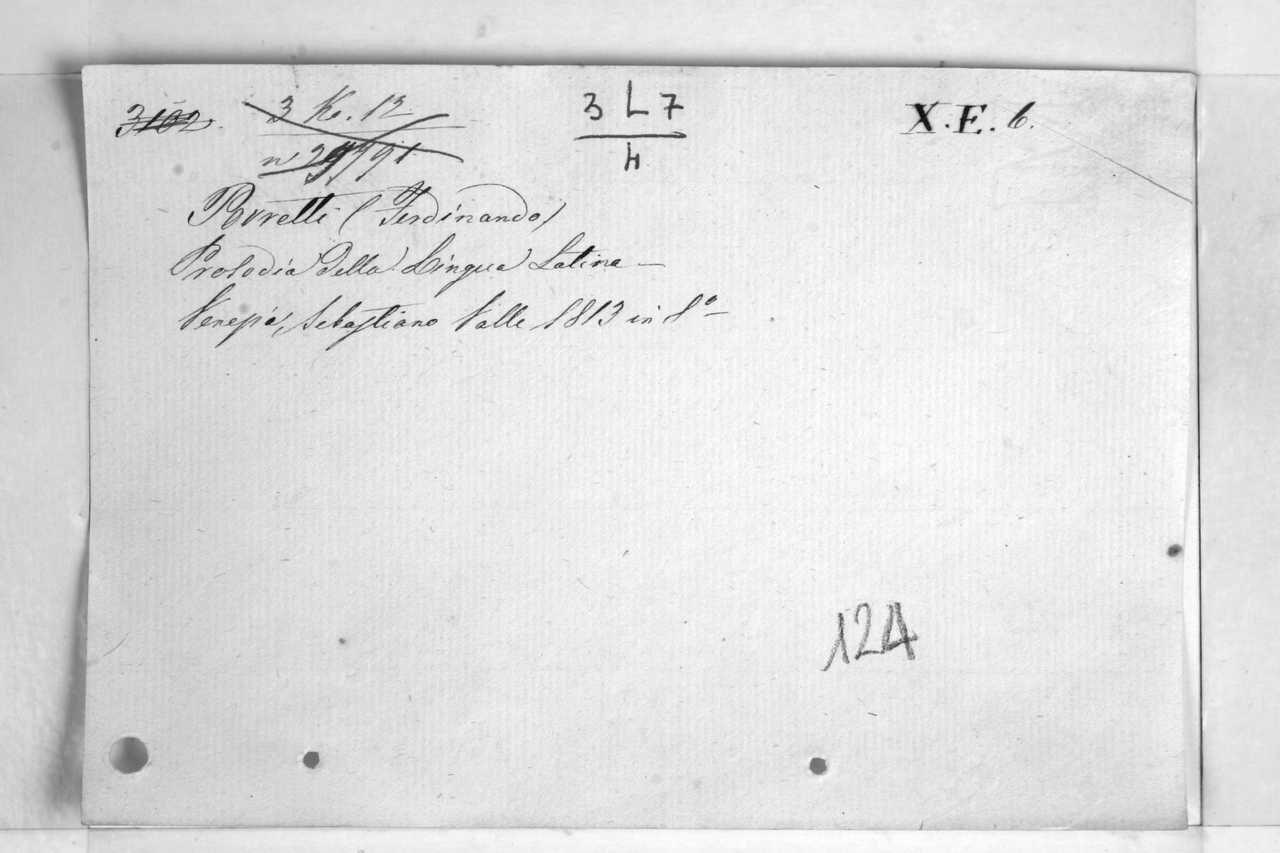 3102.
3 K. 12
3 L 7
4
X.E. 6.
n 29791
Porretti (Ferdinando)
Prosodia della Lingua Latina —
Venezia, Sebastiano Valle 1813 in 8º —
124